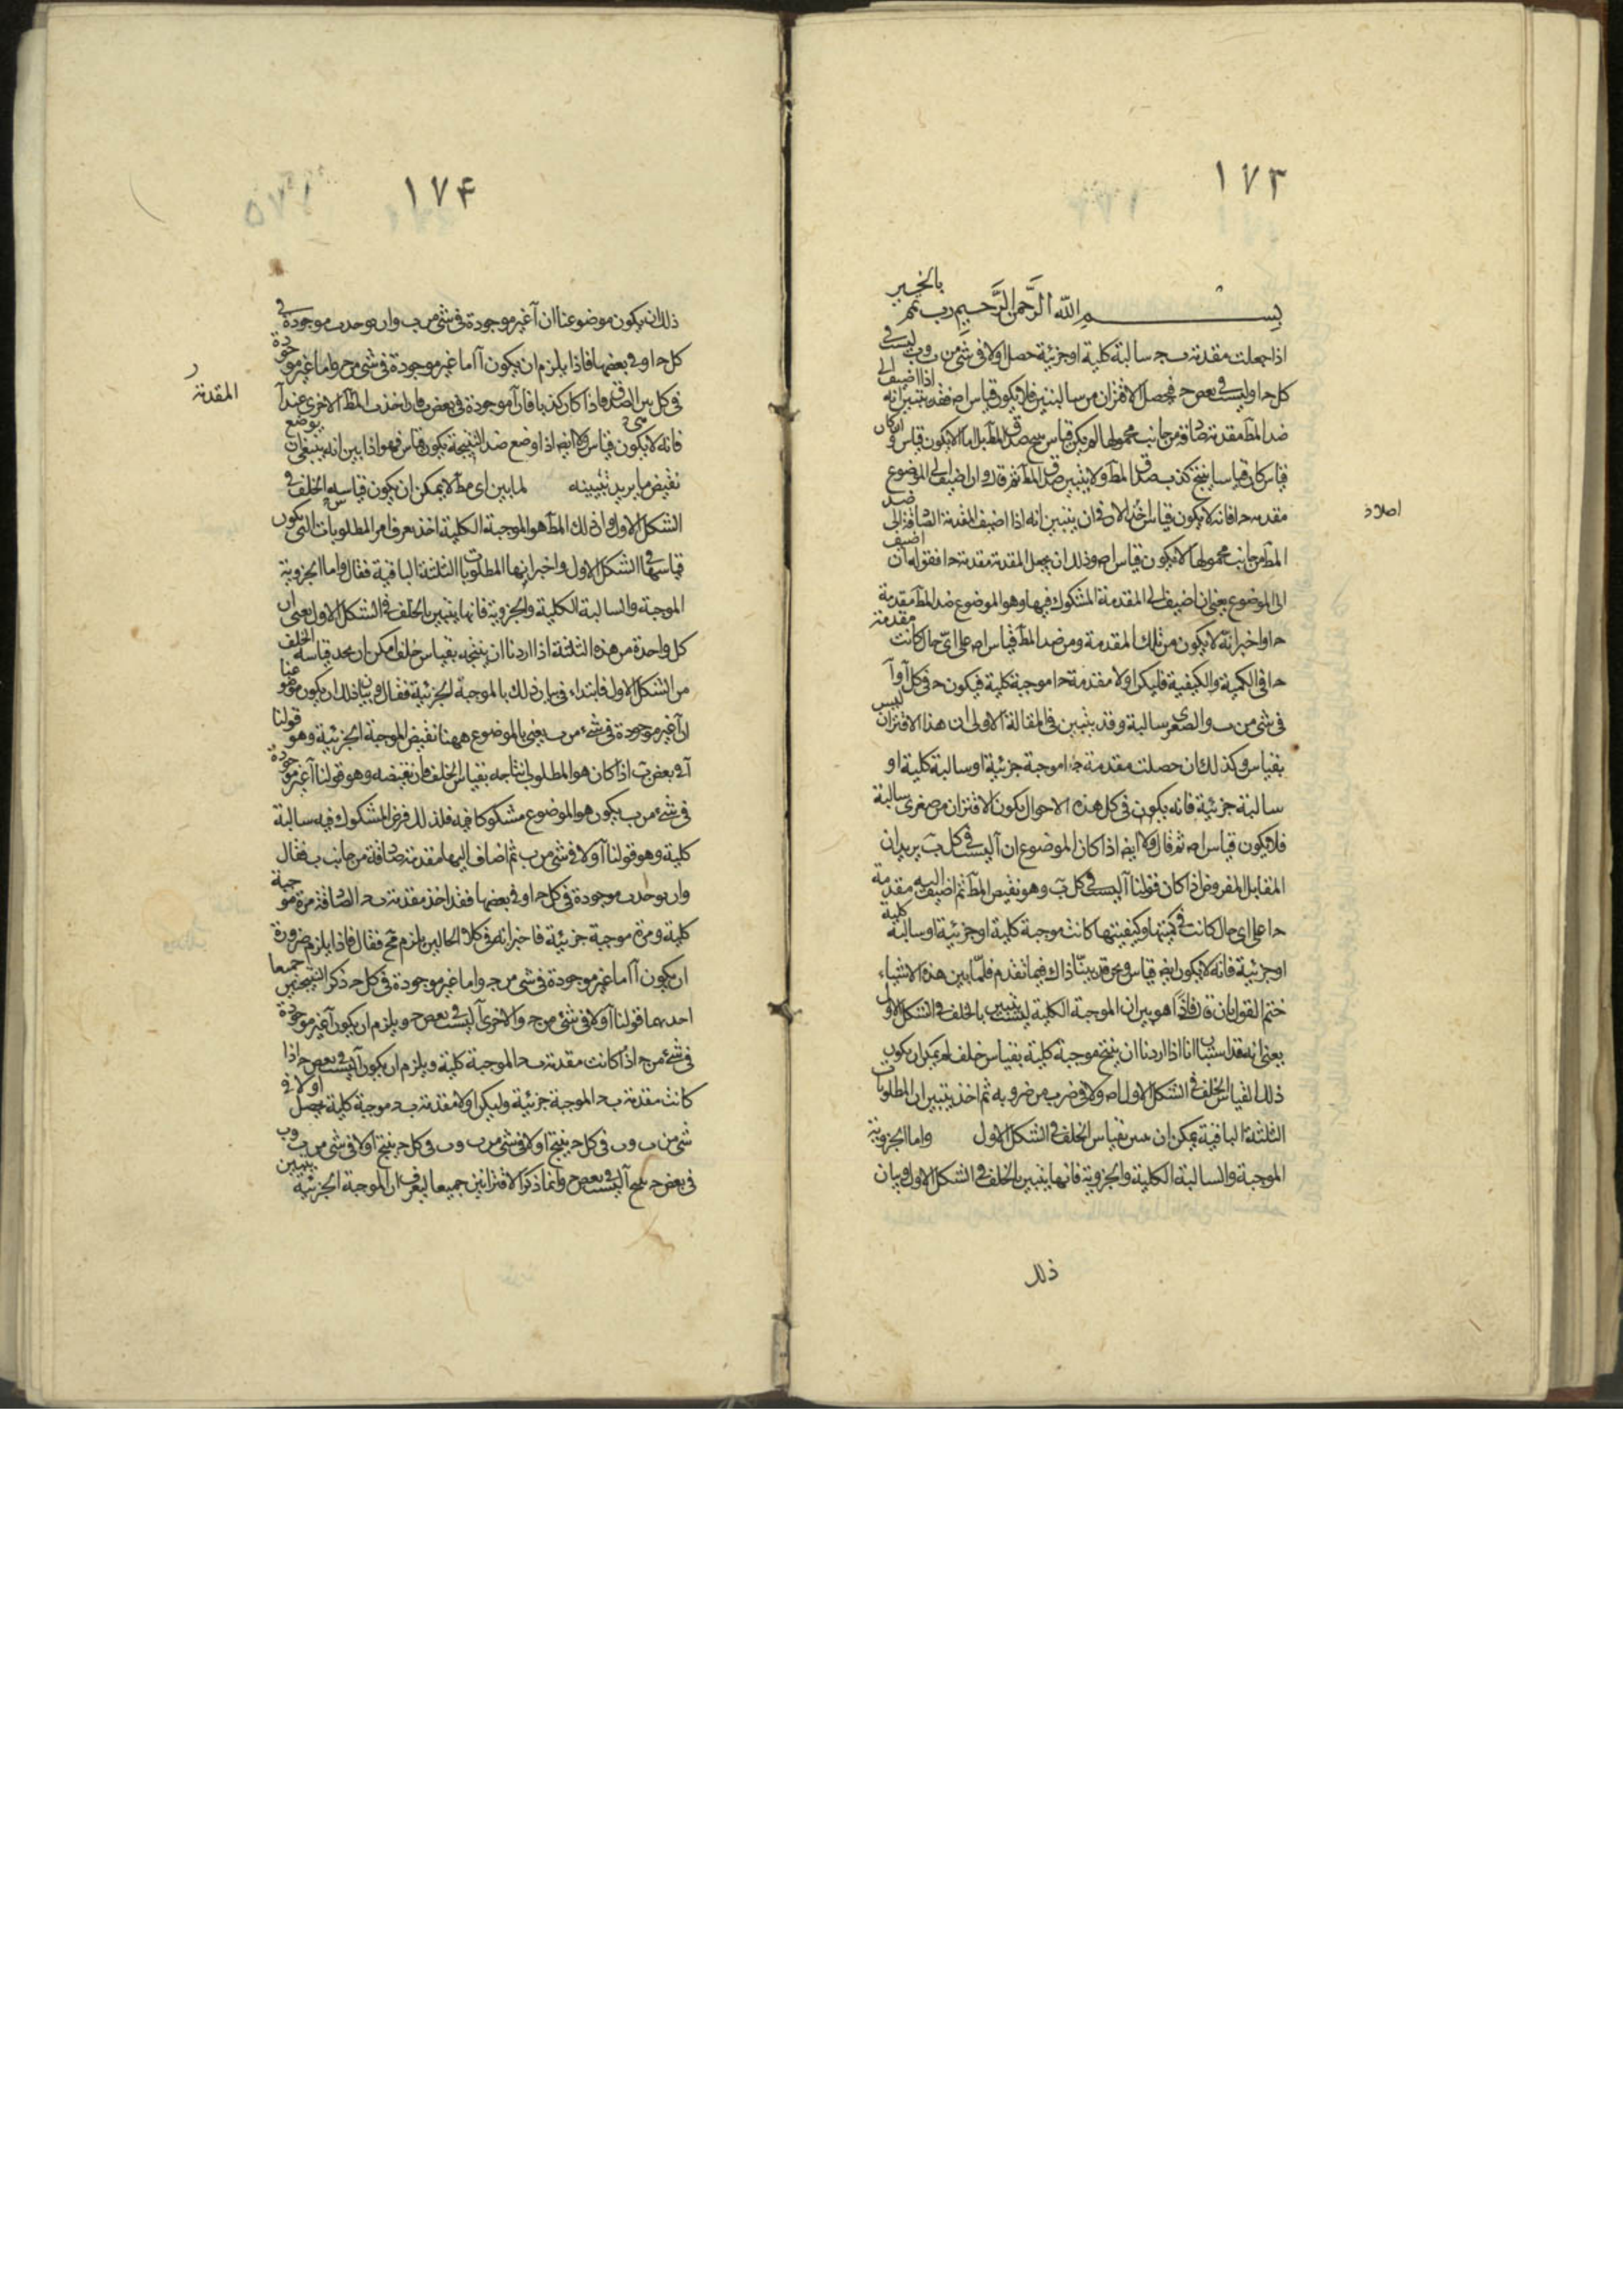 ١٧٣
بسم الله الرحمن الرحيم رب تمم بالخير
اذا جعلت مقدمة ب ج سالبة كلية او جزئية حصل ا ولا في شئ من ب و ب ليست في
كل ج او ليست في بعض ج فيحصل الاقتران من سالبتين فلا يكون قياس اصلا فقد تبين انه اذا اضيف الى
ضد المط مقدمة من جانب محمولها لم يكن قياس
قياس كان قياسا ينتج كذب المط ولا يتبين صدق المط ثم قال وان اضيف الى الموضوع
مقدمة ج ا فانه لا يكون قياس اخذ الان في ان يتبين انه اذا اضيف المقدمة المضافة الى ضد
اصلا
المط من جانب محمولها لا يكون قياس اصلا وذلك ان يجعل المقدمة مقدمة ج ا فقوله ان اضيف
الى الموضوع يعني ان اضيف الى المقدمة المشكوك فيها وهو الموضوع ضد المط مقدمة
ج ا واخبر انه لا يكون من تلك المقدمة ومن ضد المط قياس اصلا على اي حال كانت مقدمة
ج ا في الكمية والكيفية فليكن اولا مقدمة ج ا موجبة كلية فيكون ج في كل ا و ا
في شئ من ب والصغرى سالبة وقد تبين في المقالة الاولى ان هذا الاقتران ليس
بقياس وكذلك ان حصلت مقدمة ج ا موجبة جزئية او سالبة كلية او
سالبة جزئية فانه يكون في كل هذه الاحوال يكون الاقتران من صغرى سالبة
فلا يكون قياس اصلا ثم قال ولا ايضا اذا كان الموضوع ان ا ليست في كل ب يريد ان
المقابل المفروض اذا كان قولنا ا ليست في كل ب وهو نقيض المط ثم اضيف اليه مقدمة
ج ا على اي حال كانت في كميتها وكيفيتها كانت موجبة كلية او جزئية او سالبة كلية
او جزئية فانه لا يكون ايضا قياس ونحن قد بينا ذاك فيما تقدم فلما بين هذه الاشياء
ختم القول بان قال فاذا هو بين ان الموجبة الكلية ليست تتبين بالخلف في الشكل الاول
يعني انه قد استبان انا اذا اردنا ان ينتج موجبة كلية بقياس خلف لم يمكن ان يكون
ذلك القياس الخلف في الشكل الاول اصلا ولا في ضرب من ضروبه ثم اخذ يتبين ان المطلوبات
الثلثة الباقية يمكن ان بقياس الخلف في الشكل الاول واما الجزوية
الموجبة والسالبة الكلية والجزوية فانها يتبين بالخلف في الشكل الاول وبيان
ذلك
١٧۴
ذلك ان يكون موضوعنا ان ا غير موجودة في شئ من ب وان يوجد ب موجودة في
كل ج او في بعضها فاذا يلزم ان يكون ا اما غير موجودة في شئ من ج واما غير موجودة
في كل بين الصدق فاذا كان كذبا فان ا موجودة في بعض ب فان اخذت المقدمة الاخرى عند ا
المقدمة
فانه لا يكون قياس ولا ايضا اذا وضع ضد النتيجة يكون قياس فهو اذا بين انه ينبغي ان يوضع
نقيض ما يريد تبيينه لما بين اي مط لا يمكن ان يكون قياسه الخلف في
الشكل الاول وان ذلك المط هو الموجبة الكلية اخذ يعرف امر المطلوبات التي يكون
قياسها في الشكل الاول واخبر انها المطلوبات الثلثة الباقية فقال واما الجزوية
الموجبة والسالبة الكلية والجزوية فانها يتبين بالخلف في الشكل الاول يعني ان
كل واحدة من هذه الثلثة اذا اردنا ان ينتجه بقياس خلف امكن ان نجد قياسه الخلف
من الشكل الاول فابتداء في بيان ذلك بالموجبة الجزئية فقال وبيان ذلك ان يكون موضوعنا
ان ا غير موجودة في شئ من ب يعني بالموضوع ههنا نقيض الموجبة الجزئية وهو قولنا
ا في بعض ب اذا كان هو المطلوب انتاجه بقياس الخلف فان نقيضه وهو قولنا ا غير موجودة
في شئ من ب يكون هو الموضوع مشكوكا فيه فلذلك فرض المشكوك فيه سالبة
كلية وهو قولنا ا ولا في شئ من ب ثم اضاف اليها مقدمة مضافة من جانب ب فقال
وان يوجد ب موجودة في كل ج او في بعضها فقد اخذ مقدمة ب ج المضافة مرة موجبة
كلية ومرة موجبة جزئية فاخبر انه في كلا الحالين يلزم مح فقال فاذا يلزم ضرورة
ان يكون ا اما غير موجودة في شئ من ج واما غير موجودة في كل ج ذكر النتيجتين جميعا
احدهما قولنا ا ولا في شئ من ج والاخرى ا ليست في بعض ج ويلزم ان يكون ا غير موجودة
في شئ من ج اذا كانت مقدمة ب ج الموجبة كلية ويلزم ان يكون ا ليست في بعض ج اذا
كانت مقدمة ب ج الموجبة جزئية وليكن اولا مقدمة ب ج موجبة كلية فيحصل ا ولا في
شئ من ب و ب في كل ج ينتج ا ولا في شئ من ب و ب في كل ج ينتج ا ولا في شئ من ب و ب
في بعض ج ينتج ا ليست في بعض ج وانما ذكر الاقترانين جميعا ليعرف ان الموجبة الجزئية يتبين